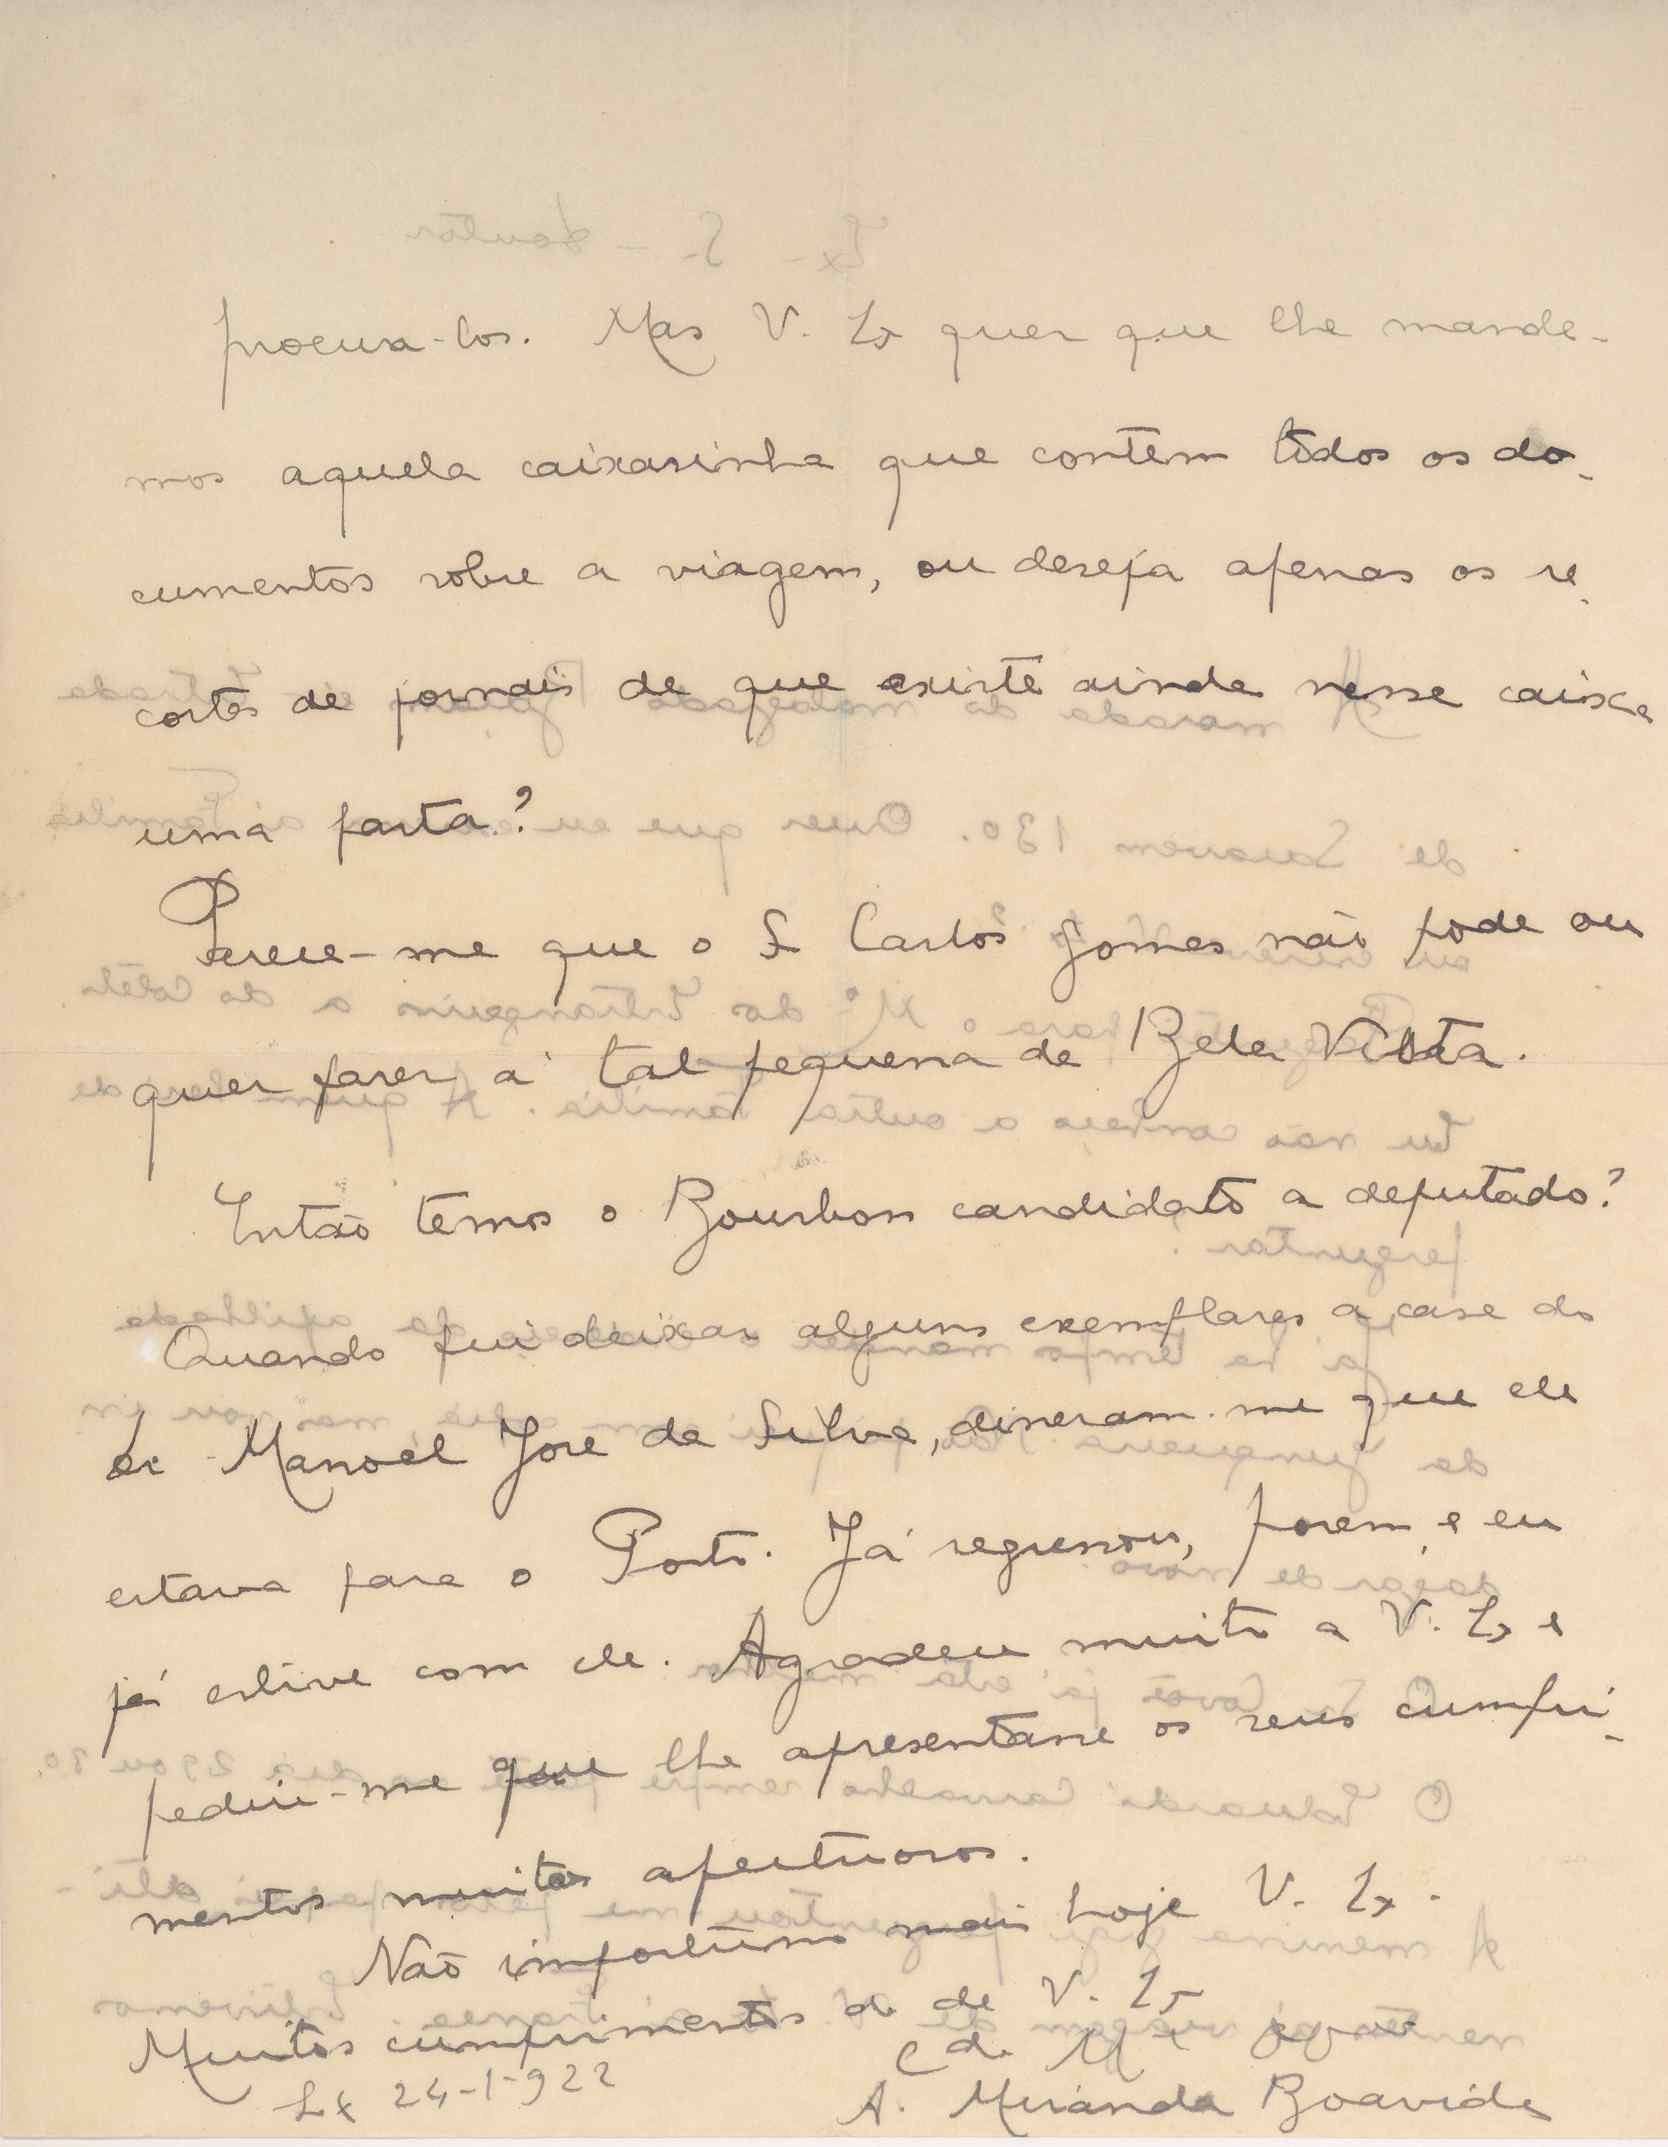 procura-los. Mas V. Ex quer que lhe mande-
mos aquela caixasinha que contêm todos os do-
cumentos sobre a viagem, ou deseja apenas os re-
cortes de jornais de que existe ainda nesse caixa
uma parta?
Parece-me que o Sr Carlos Gomes não pode ou
quer fazer a tal pequena de Bela Vista.
Então temos o Bourbon candidato a deputado?
Quando fui deixar alguns exemplares a casa do
dr Manoel José da Silva, disseram-me que ele
estava para o Porto. Já regressou, porem, e eu
já estive com ele. Agradeceu muito a V. Ex e
pediu-me que lhe apresentasse os seus cumpri-
mentos muitos afectuosos.
Não importuno mais hoje V. Ex.
Muitos cumprimentos do de V. Ex
C do M
Lx 24-1-922
A. Miranda Boavida